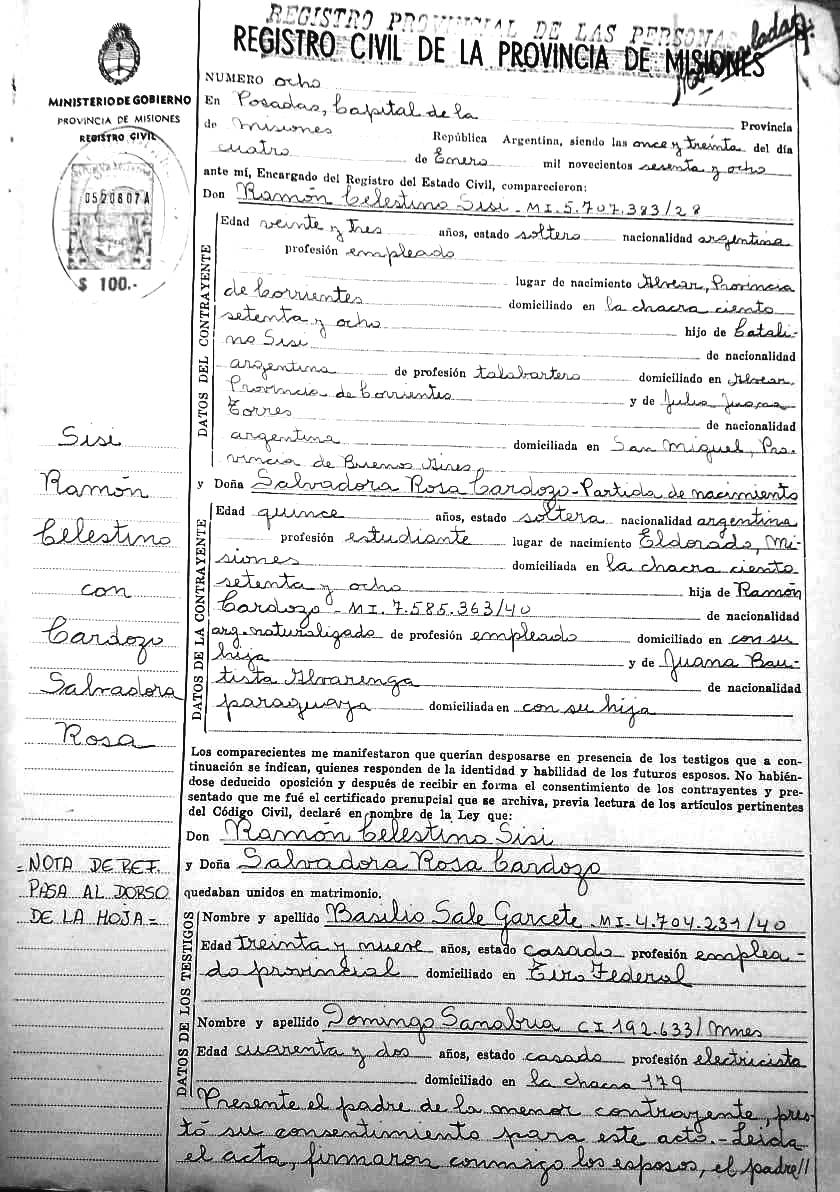 REGISTRO PROVINCIAL DE LAS PERSONAS
REGISTRO CIVIL DE LA PROVINCIA DE MISIONES
MINISTERIO DE GOBIERNO
PROVINCIA DE MISIONES
REGISTRO CIVIL
0520807A
$ 100.-
NUMERO ocho
En Posadas, Capital de la Provincia
de Misiones República Argentina, siendo las once y treinta del día
cuatro de Enero mil novecientos sesenta y ocho
ante mí, Encargado del Registro del Estado Civil, comparecieron:
Don Ramón Celestino Sisi - MI. 5.707.383/28
DATOS DEL CONTRAYENTE
Edad veinte y tres años, estado soltero nacionalidad argentina
profesión empleado
lugar de nacimiento Alvear, Provincia
de Corrientes domiciliado en la chacra ciento
setenta y ocho hijo de Catali-
no Sisi de nacionalidad
argentina de profesión talabartero domiciliado en Alvear,
Provincia de Corrientes y de Julia Juana
Torres de nacionalidad
argentina domiciliada en San Miguel, Pro-
vincia de Buenos Aires,
y Doña Salvadora Rosa Cardozo - Partida de nacimiento
DATOS DE LA CONTRAYENTE
Edad quince años, estado soltera nacionalidad argentina
profesión estudiante lugar de nacimiento Eldorado, Mi-
siones domiciliada en la chacra ciento
setenta y ocho hija de Ramón
Cardozo - MI. 7.585.363/40 de nacionalidad
arg. naturalizado de profesión empleado domiciliado en con su
hija y de Juana Bau-
tista Alvarenga de nacionalidad
paraguaya domiciliada en con su hija
Sisi
Ramón
Celestino
con
Cardozo
Salvadora
Rosa
Los comparecientes me manifestaron que querían desposarse en presencia de los testigos que a con-
tinuación se indican, quienes responden de la identidad y habilidad de los futuros esposos. No habién-
dose deducido oposición y después de recibir en forma el consentimiento de los contrayentes y pre-
sentado que me fué el certificado prenupcial que se archiva, previa lectura de los artículos pertinentes
del Código Civil, declaré en nombre de la Ley que:
Don Ramón Celestino Sisi
y Doña Salvadora Rosa Cardozo
quedaban unidos en matrimonio.
= NOTA DE REF.
PASA AL DORSO
DE LA HOJA =
DATOS DE LOS TESTIGOS
Nombre y apellido Basilio Sale Garcete - MI. 4.704.231/40
Edad treinta y nueve años, estado casado profesión emplea-
do provincial domiciliado en Tiro Federal
Nombre y apellido Domingo Sanabria CI 192.633/Mnes
Edad cuarenta y dos años, estado casado profesión electricista
domiciliado en la chacra 179
Presente el padre de la menor contrayente, pres-
tó su consentimiento para este acto.- Leida
el acta, firmaron conmigo los esposos, el padre//